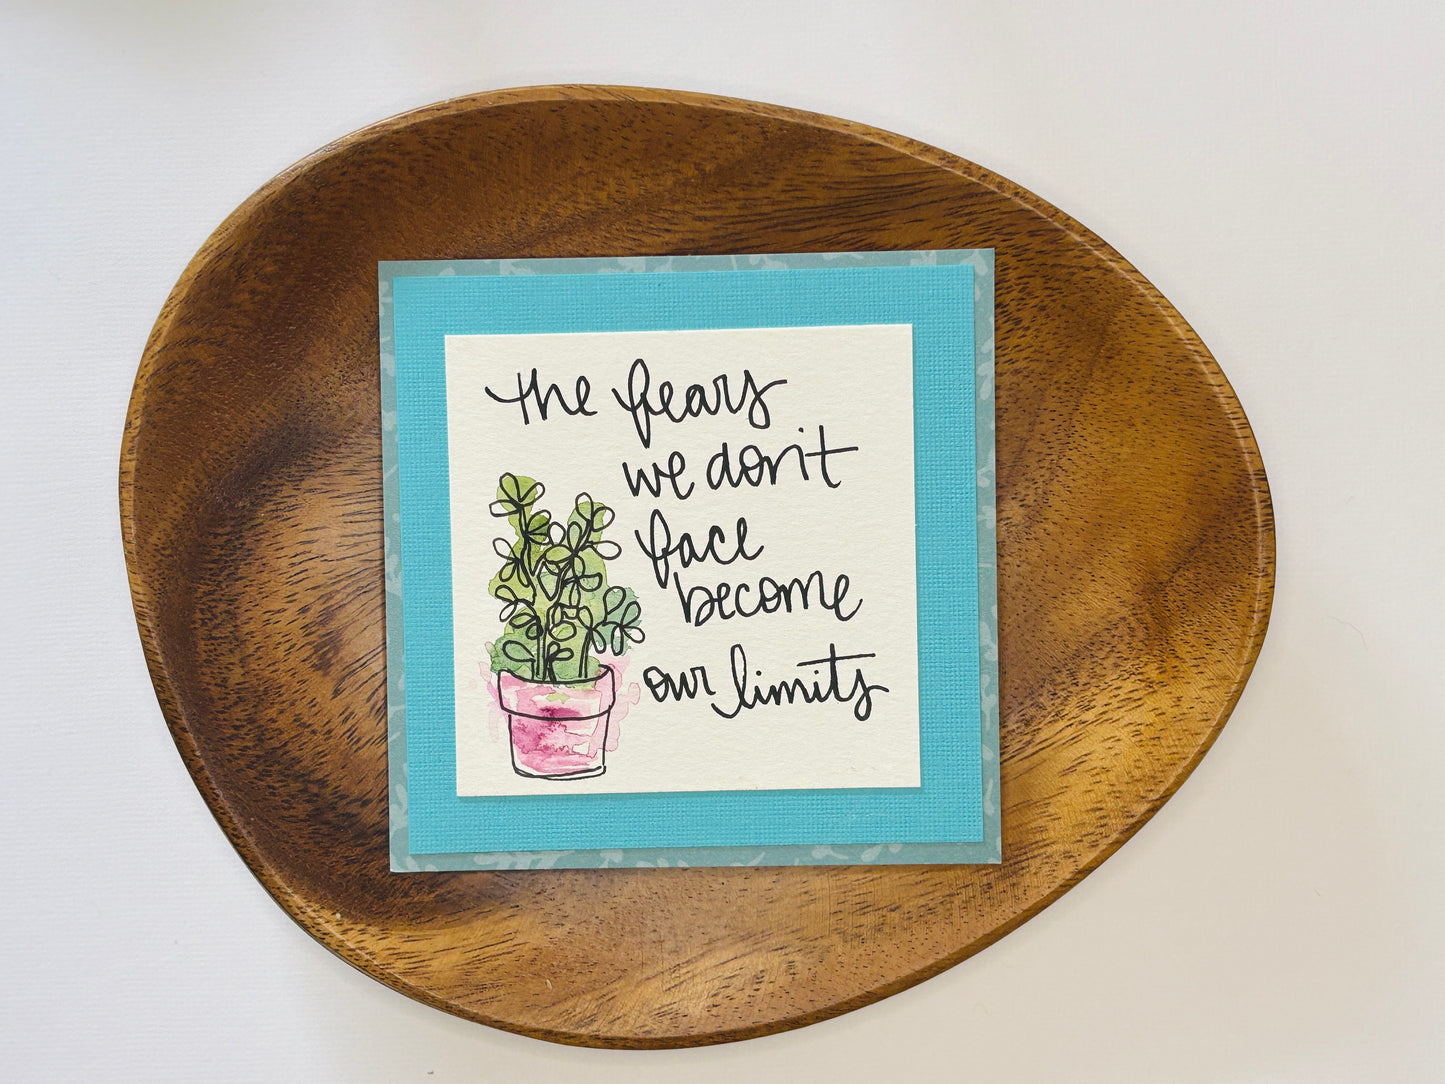 the fears
we don't
face
become
our limits